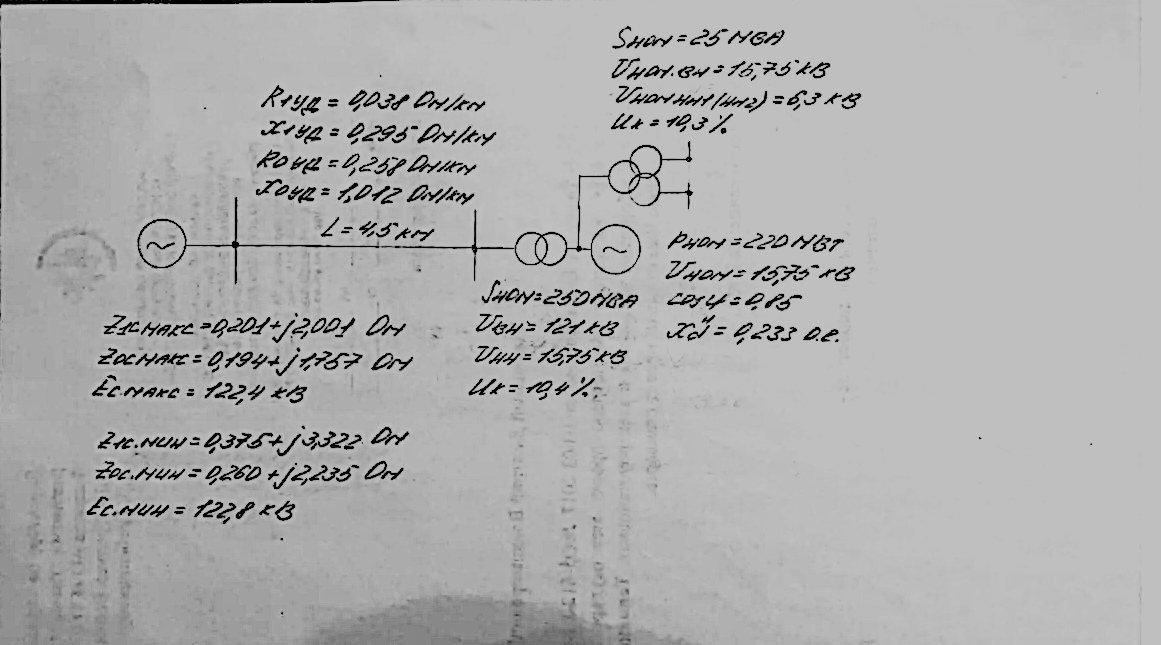 Sном = 25 МВА
Uном.вн = 15,75 кВ
Uном нн1(нн2) = 6,3 кВ
Uк = 10,3%
R1уд = 0,038 Ом/км
X1уд = 0,295 Ом/км
R0уд = 0,258 Ом/км
X0уд = 1,012 Ом/км
L = 4,5 км
Pном = 220 МВт
Uном = 15,75 кВ
cosφ = 0,85
X"d = 0,233 о.е.
Sном = 250 МВА
Uвн = 121 кВ
Uнн = 15,75 кВ
Uк = 10,4%
Z1с.макс = 0,201 + j2,001 Ом
Z0с.макс = 0,194 + j1,757 Ом
Eс.макс = 122,4 кВ
Z1с.мин = 0,375 + j3,322 Ом
Z0с.мин = 0,260 + j2,235 Ом
Eс.мин = 122,8 кВ